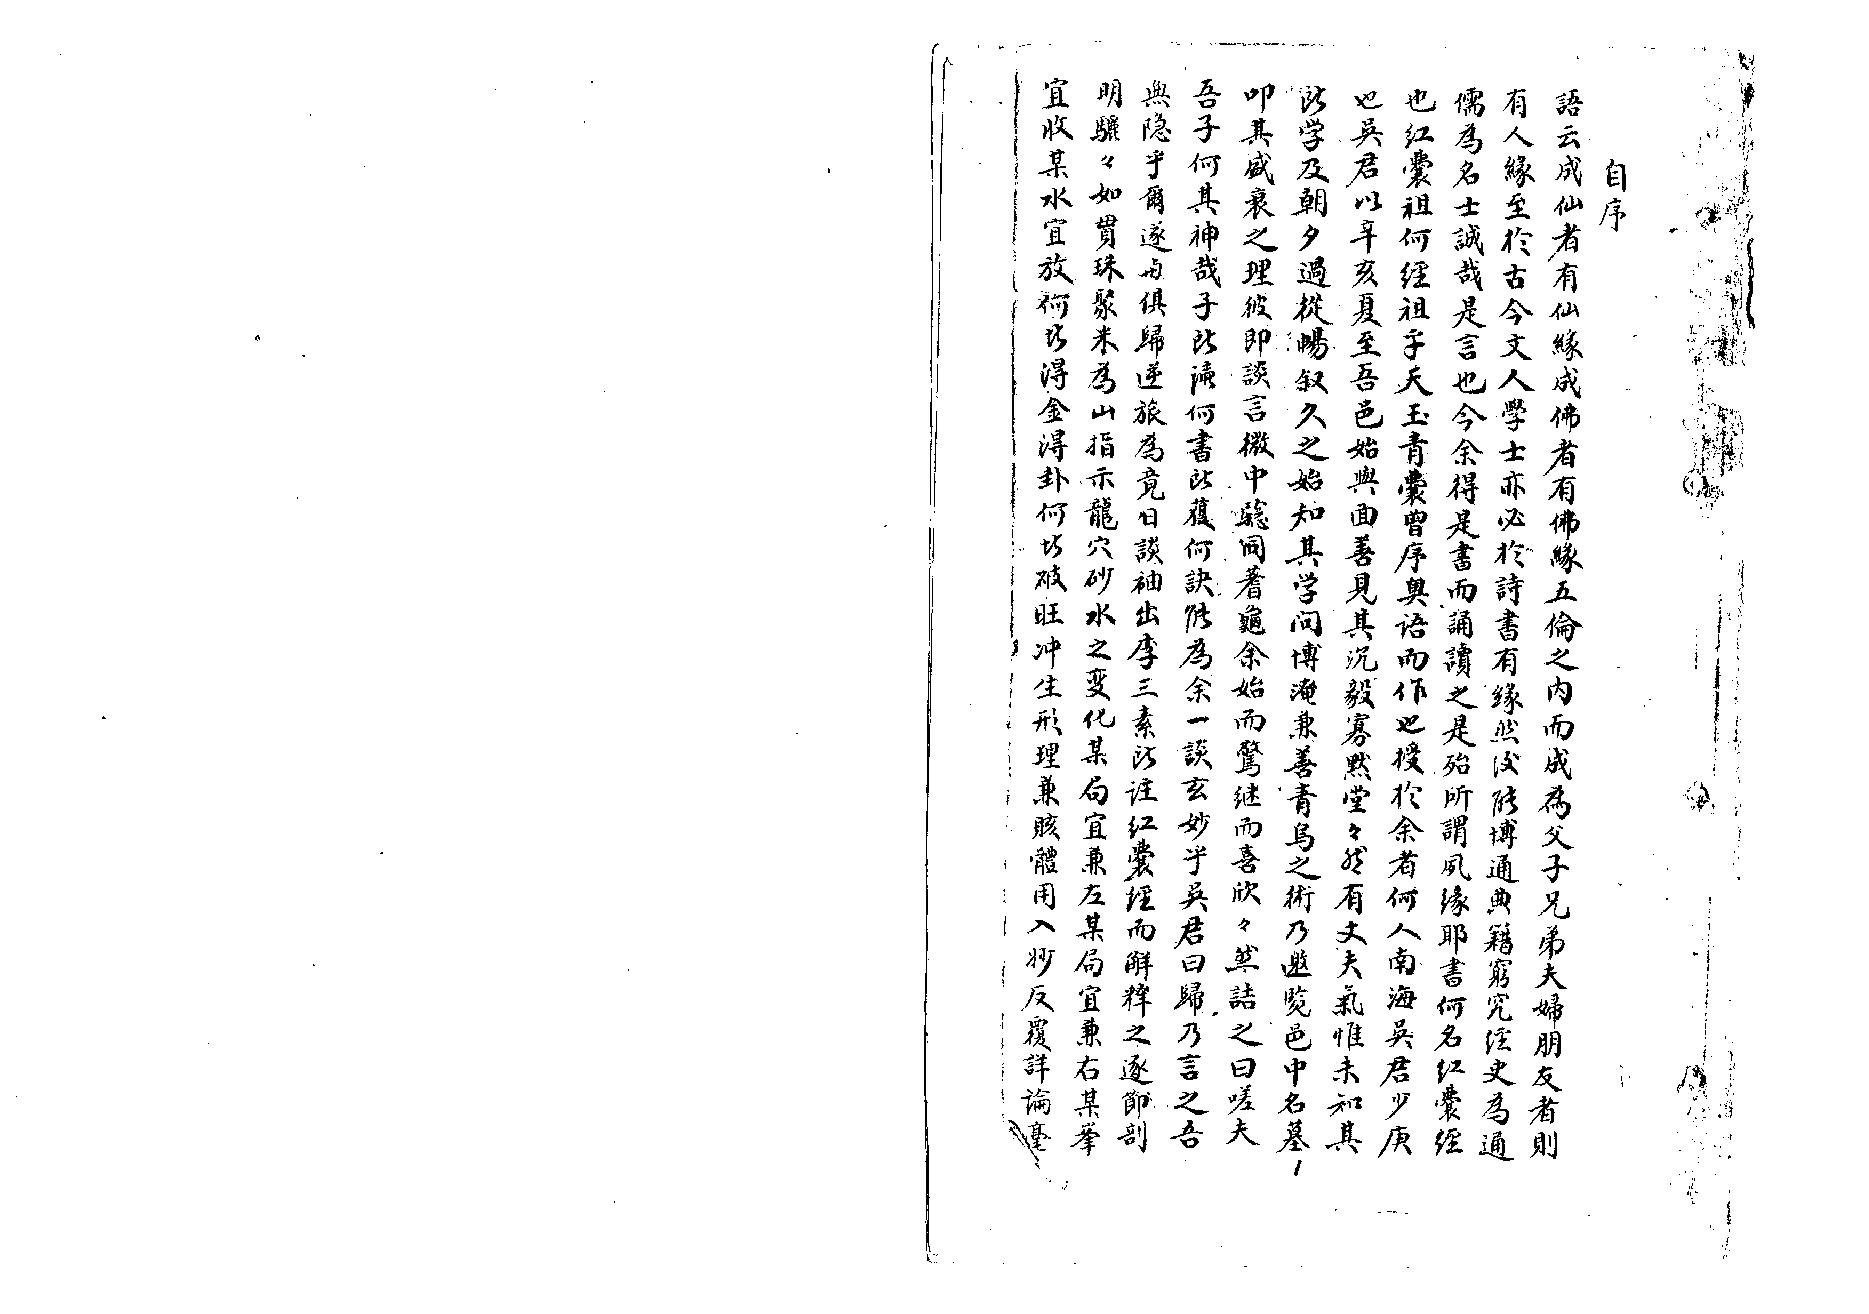 自序
語云成仙者有仙緣成佛者有佛緣五倫之内而成為父子兄弟夫婦朋友者則
有人緣至於古今文人學士亦必於詩書有緣然後能博通典籍窮究經史為通
儒為名士誠哉是言也今余得是書而誦讀之是殆所謂夙緣耶書何名紅囊經
也紅囊祖何經祖乎天玉青囊曾序奥语而作也授於余者何人南海吳君少庚
也吳君以辛亥夏至吾邑始與面善見其沉毅寡默堂々然有丈夫氣惟未知其
所学及朝夕過從暢叙久之始知其学问博淹兼善青烏之術乃邀覧邑中名墓
叩其盛衰之理彼即談言微中驗同蓍龜余始而驚继而喜欣々然詰之曰嗟夫
吾子何其神哉子所讀何書所獲何訣能為余一談玄妙乎吳君曰歸乃言之吾
無隐乎爾遂与俱歸逆旅為竟日談袖出李三素所註紅囊經而解釋之逐節剖
明驪々如貫珠聚米為山指示龍穴砂水之变化某局宜兼左某局宜兼右某峯
宜收某水宜放何以得金得卦何以破旺冲生形理兼賅體用入妙反覆詳論毫